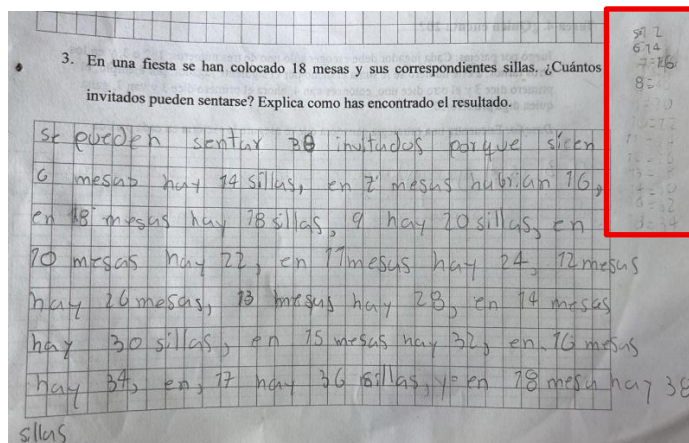 3. En una fiesta se han colocado 18 mesas y sus correspondientes sillas. ¿Cuántos
invitados pueden sentarse? Explica como has encontrado el resultado.
se pueden sentar invitados porque si en
6 mesas hay 14 sillas, en 7 mesas habrian 16,
en 8 mesas hay 18 sillas, 9 hay 20 sillas, en
10 mesas hay 22, en 11 mesas hay 24, 12 mesas
hay 26 mesas, 13 mesas hay 28, en 14 mesas
hay 30 sillas, en 15 mesas hay 32, en 16 mesas
hay 34, en, 17 hay 36 sillas, y en 18 mesa hay 38
sillas
6 14
7=16
8=